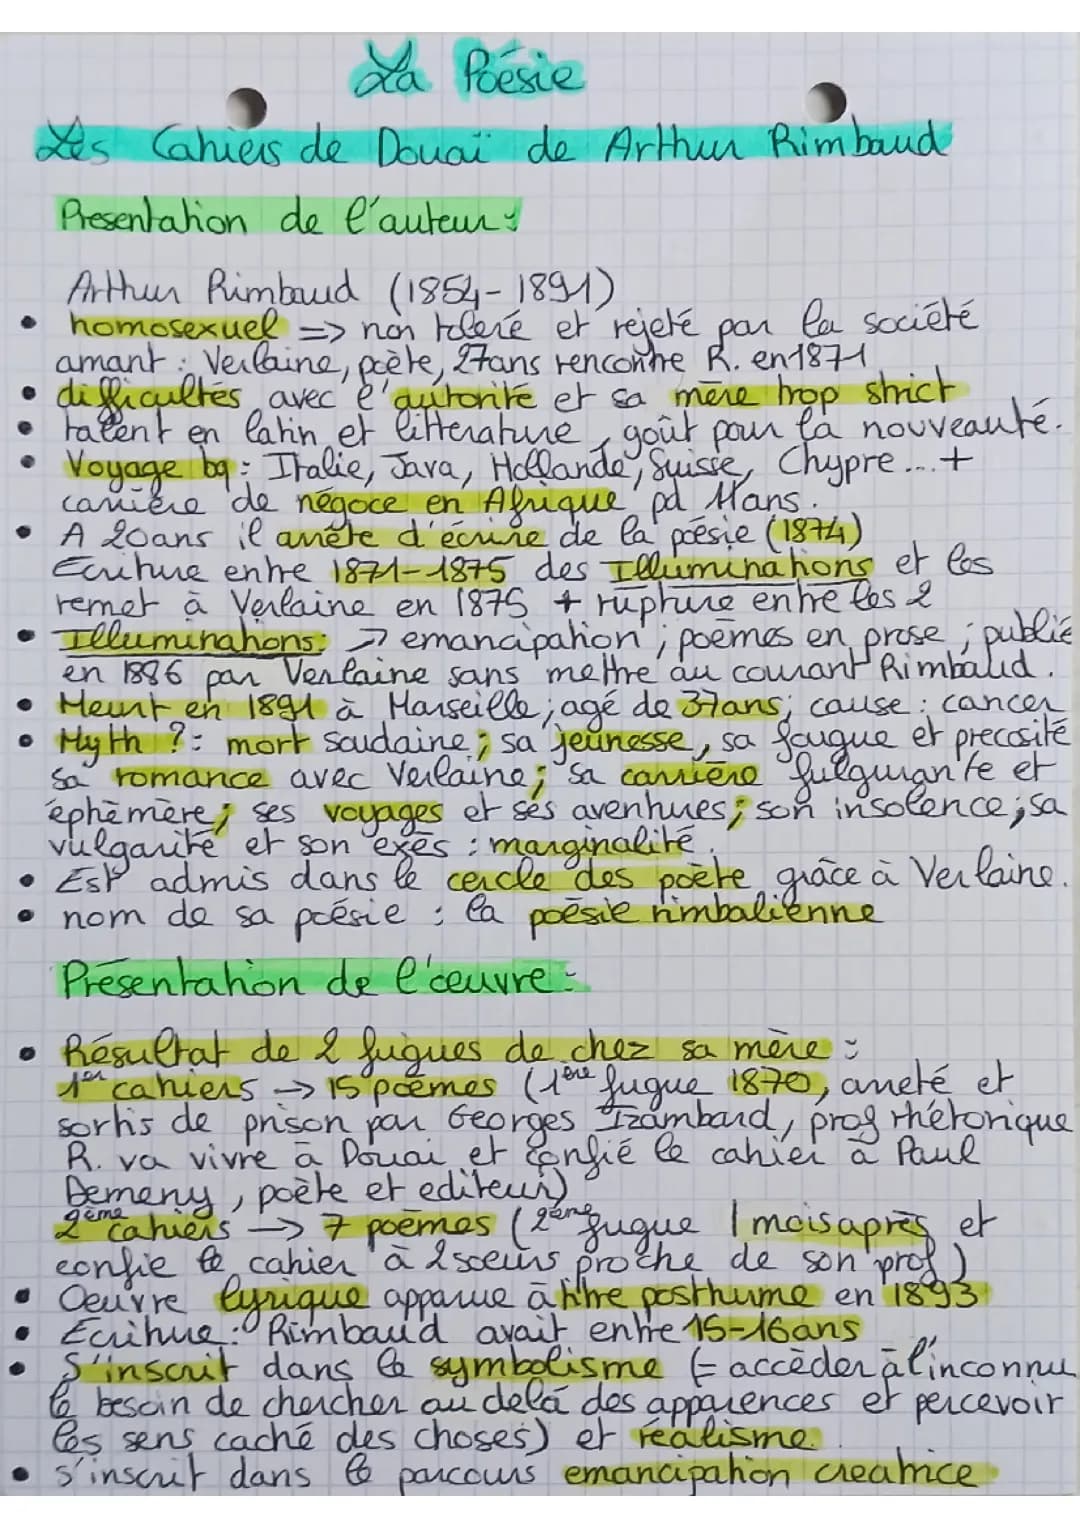 La Poésie
Les Cahiers de Douaï de Arthur Rimbaud
Presentation de l'auteur :
Arthur Rimbaud (1854-1891)
• homosexuel => non toleré et rejeté par la société
amant : Verlaine, poète, 27ans rencontre R. en 1871
• difficultés avec l'autorité et sa mère trop strict
• talent en latin et litterature, goût pour la nouveauté.
• Voyage bq : Italie, Java, Hollande, Suisse, Chypre... +
carrière de négoce en Afrique pd 11ans.
• A 20ans il arrête d'écrire de la poésie (1874)
Ecriture entre 1871-1875 des Illuminations et les
remet à Verlaine en 1875 + rupture entre les 2
• Illuminations: -> emancipation ; poèmes en prose ; publié
en 1886 par Verlaine sans mettre au courant Rimbaud.
• Meurt en 1891 à Marseille; agé de 37ans; cause : cancer
• Myth ? : mort soudaine ; sa jeunesse, sa fougue et precosité
sa romance avec Verlaine; sa carrière fulgurante et
éphèmère; ses voyages et ses aventures; son insolence; sa
vulgarité et son exès : marginalité.
• Est admis dans le cercle des poète grâce à Verlaine.
• nom de sa poésie : la poésie rimbalienne
Présentation de l'œuvre :
• Résultat de 2 fugues de chez sa mère :
1er cahiers -> 15 poèmes (1ère fugue 1870, arreté et
sortis de prison par Georges Izambard, prof rhétorique
R. va vivre à Douai et confié le cahier à Paul
Demeny, poète et editeur)
2ème cahiers -> 7 poèmes (2ème fugue 1 mois après et
confie le cahier à 2 soeurs proche de son prof)
• Oeuvre lyrique apparue à titre posthume en 1893
• Ecriture : Rimbaud avait entre 15-16ans
• S'inscrit dans le symbolisme (= accèder à l'inconnu
le besoin de chercher au delà des apparences et percevoir
les sens caché des choses) et réalisme.
• s'inscrit dans le parcours emancipation creatrice